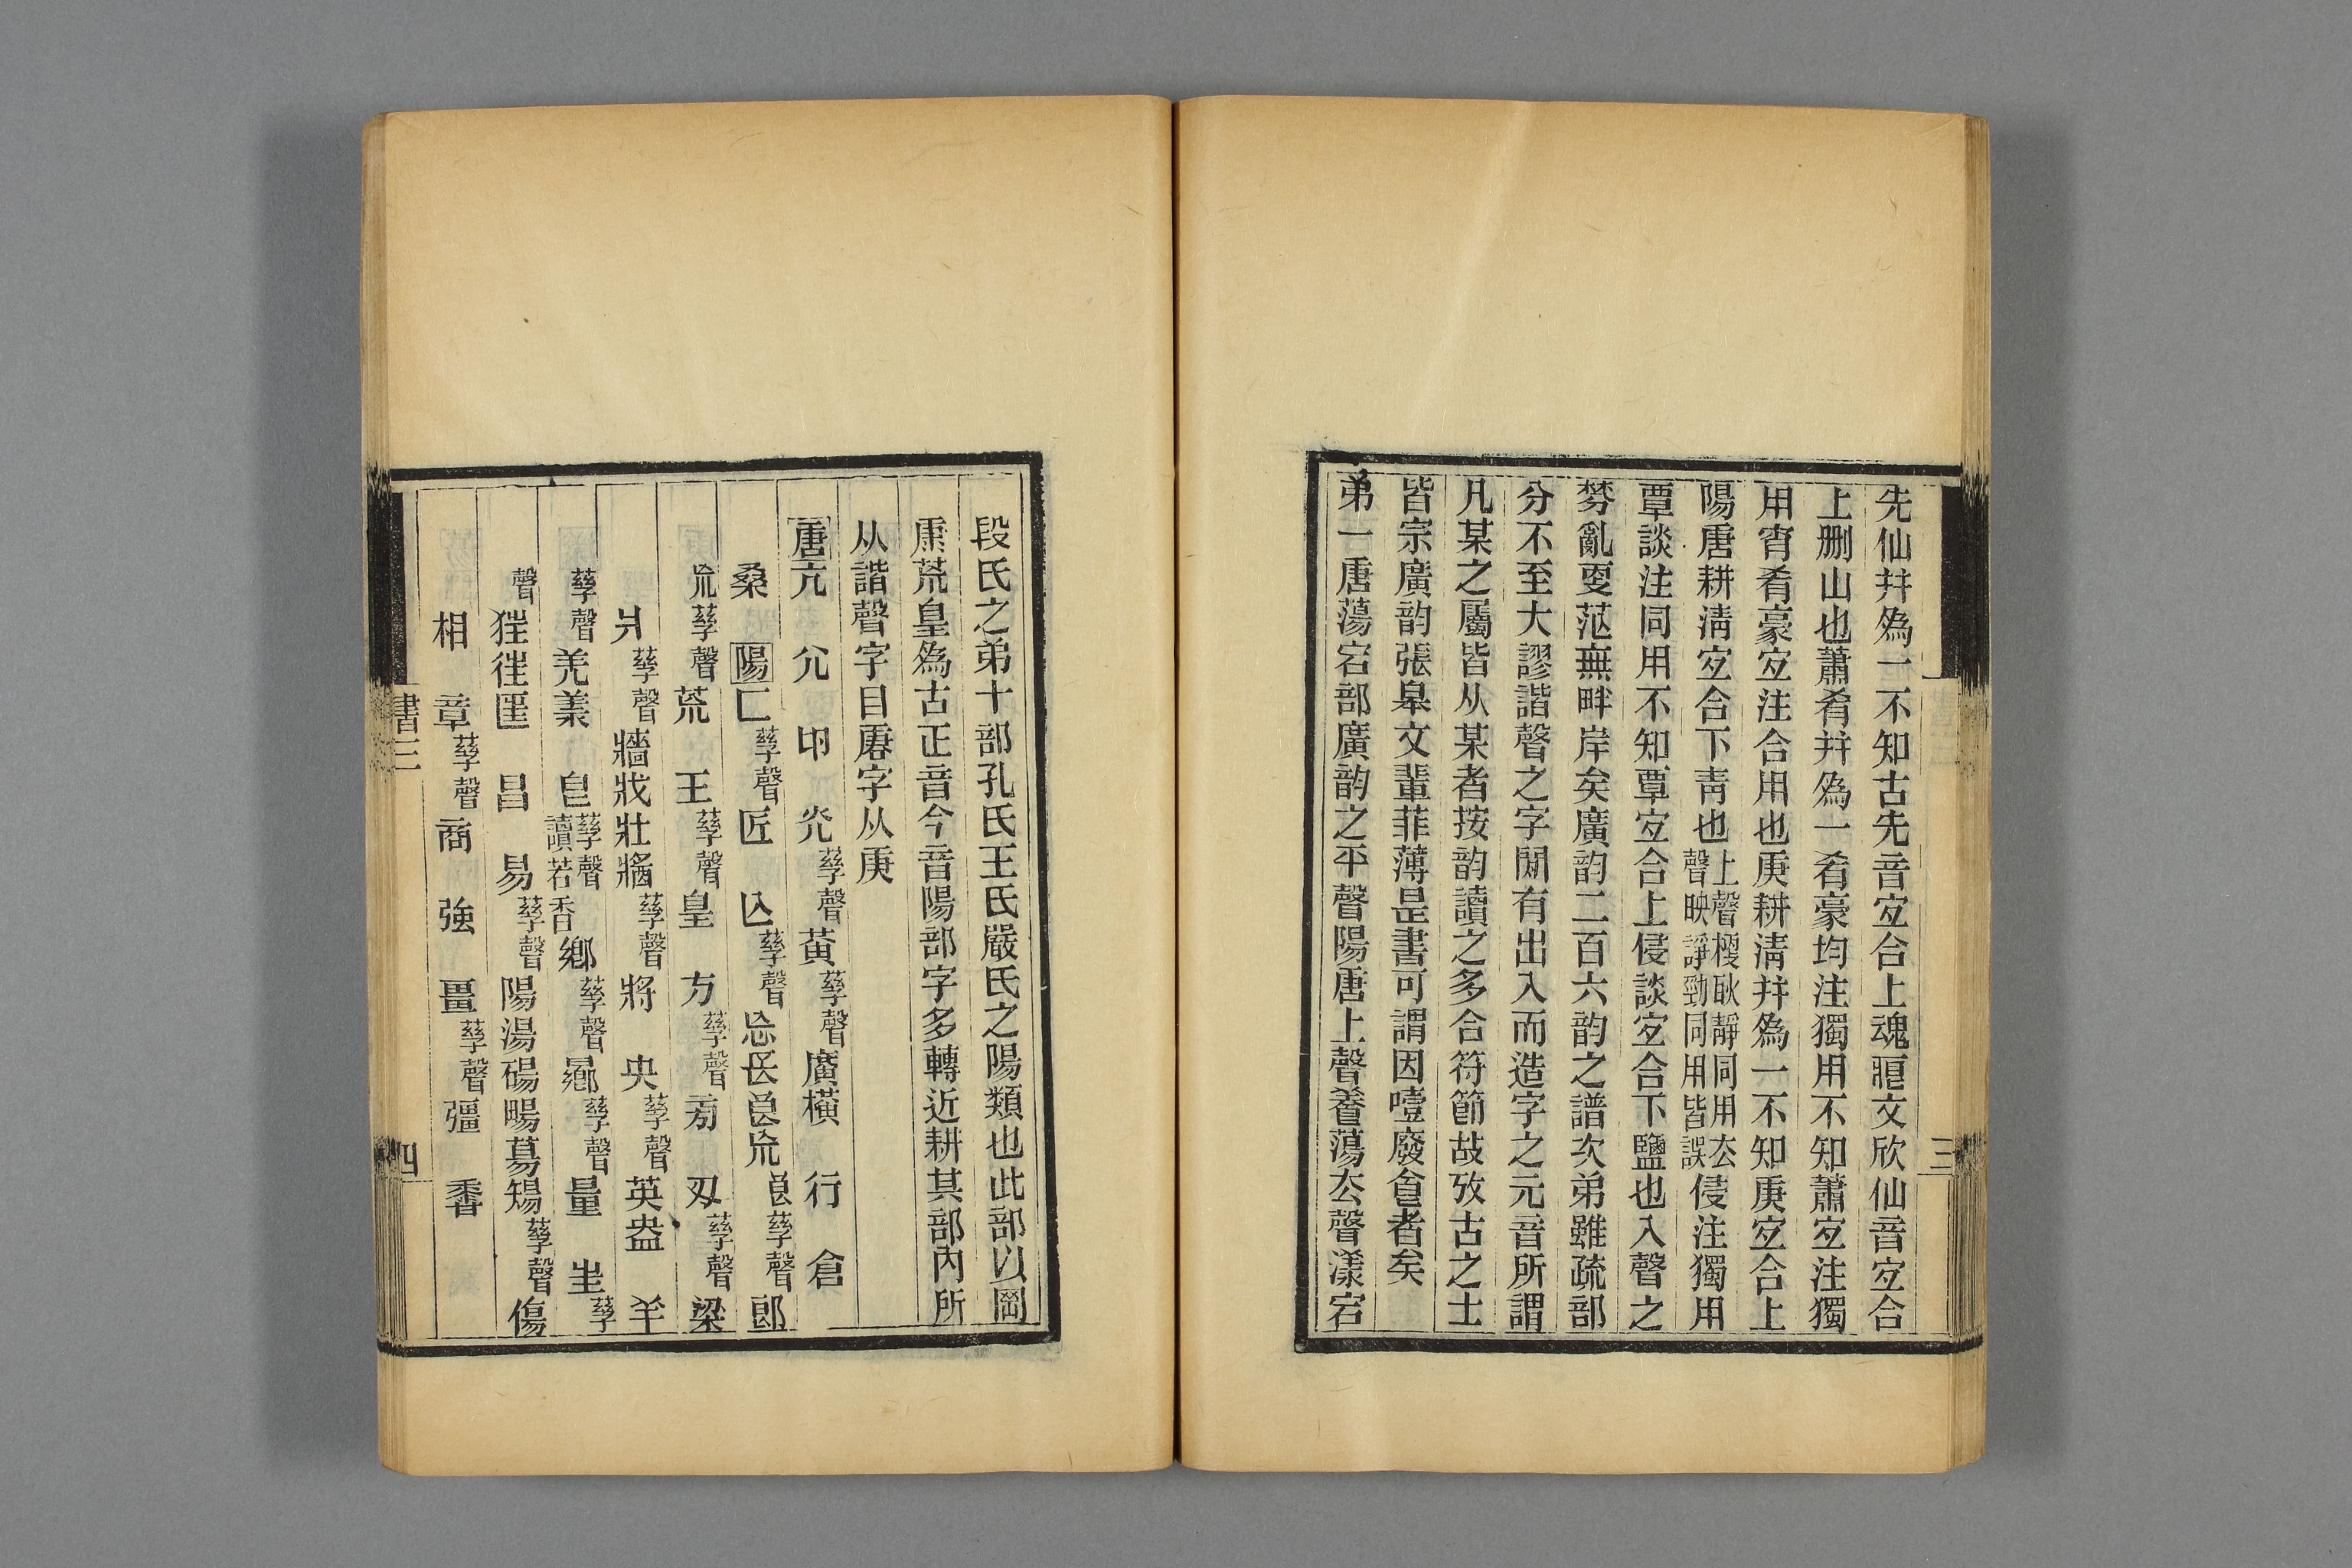 先仙幷爲一不知古先音㝎合上魂䰟文欣仙音㝎合
上刪山也蕭肴幷爲一肴豪均注獨用不知蕭㝎注獨
用宵肴豪㝎注合用也庚耕淸幷爲一不知庚㝎合上
陽唐耕淸㝎合下靑也上聲梗耿靜同用厺
聲映諍勁同用皆誤侵注獨用
覃談注同用不知覃㝎合上侵談㝎合下鹽也入聲之
棼亂㪅茫無畔岸矣廣韵二百六韵之譜次弟雖疏部
分不至大謬諧聲之字閒有出入而造字之元音所謂
凡某之屬皆从某者按韵讀之多合符節故攷古之士
皆宗廣韵張皋文輩菲薄是書可謂因噎廢食者矣
弟一唐蕩宕部廣韵之平聲陽唐上聲養蕩厺聲漾宕
三
段氏之弟十部孔氏王氏嚴氏之陽類也此部以岡
康荒皇爲古正音今音陽部字多轉近耕其部內所
从諧聲字目㢝字从庚
唐亢 尣 㕅 炗孳聲黃孳聲廣橫 行 倉
桑 陽匚孳聲匠 亾孳聲㤀㠩㫐㠩㫐孳聲郎
㠩孳聲荒 王孳聲皇 方孳聲㫄 刅孳聲梁
爿孳聲牆戕壯牆孳聲將 央孳聲英盎 羊
孳聲羌羕 皀孳聲
讀若香鄉孳聲曏孳聲量 㞷孳
聲狂往匡 昌 昜孳聲陽湯碭暢募煬孳聲傷
相 章孳聲商 強 畺孳聲彊 香
書三
四